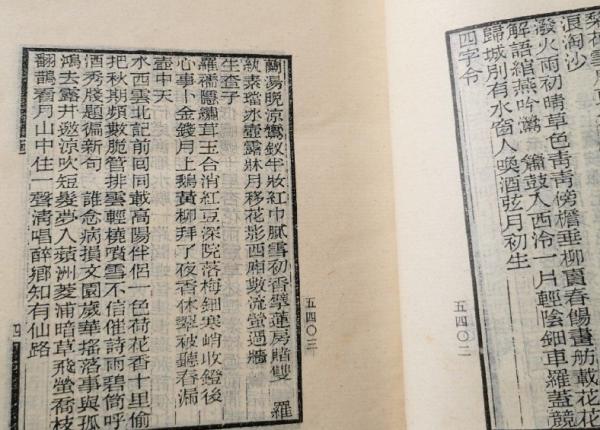 浪淘沙
潑火雨初晴草色青青傍檐垂柳賣春餳畫舫載花花
解語綰燕吟鶯 簫鼓入西泠一片輕陰鈿車羅蓋競
歸城別有水窗人喚酒弦月初生
四字令
五四〇二
五四〇三
蘭湯晚涼鸞釵半妝紅巾膩雪初香擘蓮房賭雙 羅
紈素璫冰壺露牀月移花影西廂數流螢過牆
生查子
羅襦隱繡茸玉合消紅豆深院落梅鈿寒峭收鐙後
心事卜金錢月上鵝黃柳拜了夜香休翠被聽春漏
壺中天
水西雲北記前回同載高陽伴侶一色荷花香十里偷
把秋期頻數脆管排雲輕橈噴雪不信催詩雨碧筒呼
酒秀牋題徧新句 誰念病損文園歲華搖落事與孤
鴻去露井邀涼吹短髮夢入蘋洲菱浦暗草飛螢喬枝
翻鵲看月山中住一聲清唱醉鄉知有仙路
四